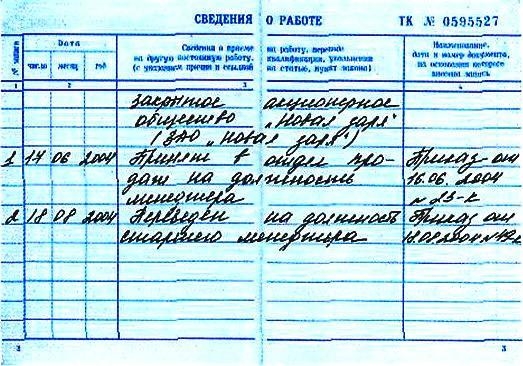 СВЕДЕНИЯ О РАБОТЕ ТК № 0595527
№ записи
Дата
Сведения о приеме на работу, переводе
на другую постоянную работу, квалификации, увольнении
(с указанием причин и ссылкой на статью, пункт закона)
Наименование,
дата и номер документа,
на основании которого
внесена запись
число месяц год
1 2 3 4
закрытое акционерное
общество „Новая заря"
(ЗАО „Новая заря")
1 14 06 2004 Принят в отдел про- Приказ от
даж на должность 16.06.2004
менеджера
2 18 08 2004 Переведен на должность Приказ от
старшего менеджера 18.08.2004
2 3